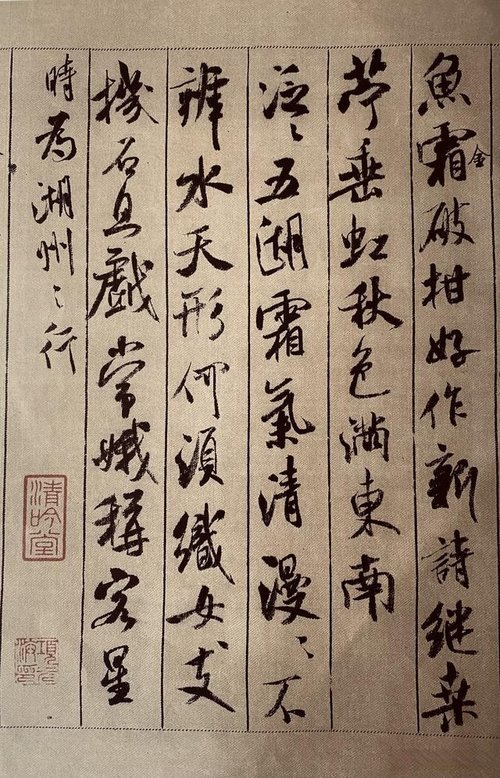 魚霜破柑好作新詩繼桑
金
苧垂虹秋色滿東南
泛〻五湖霜氣清漫〻不
辨水天形何須織女支
機石且戲常娥稱客星
時為湖州之行
清吟堂
項元汴印